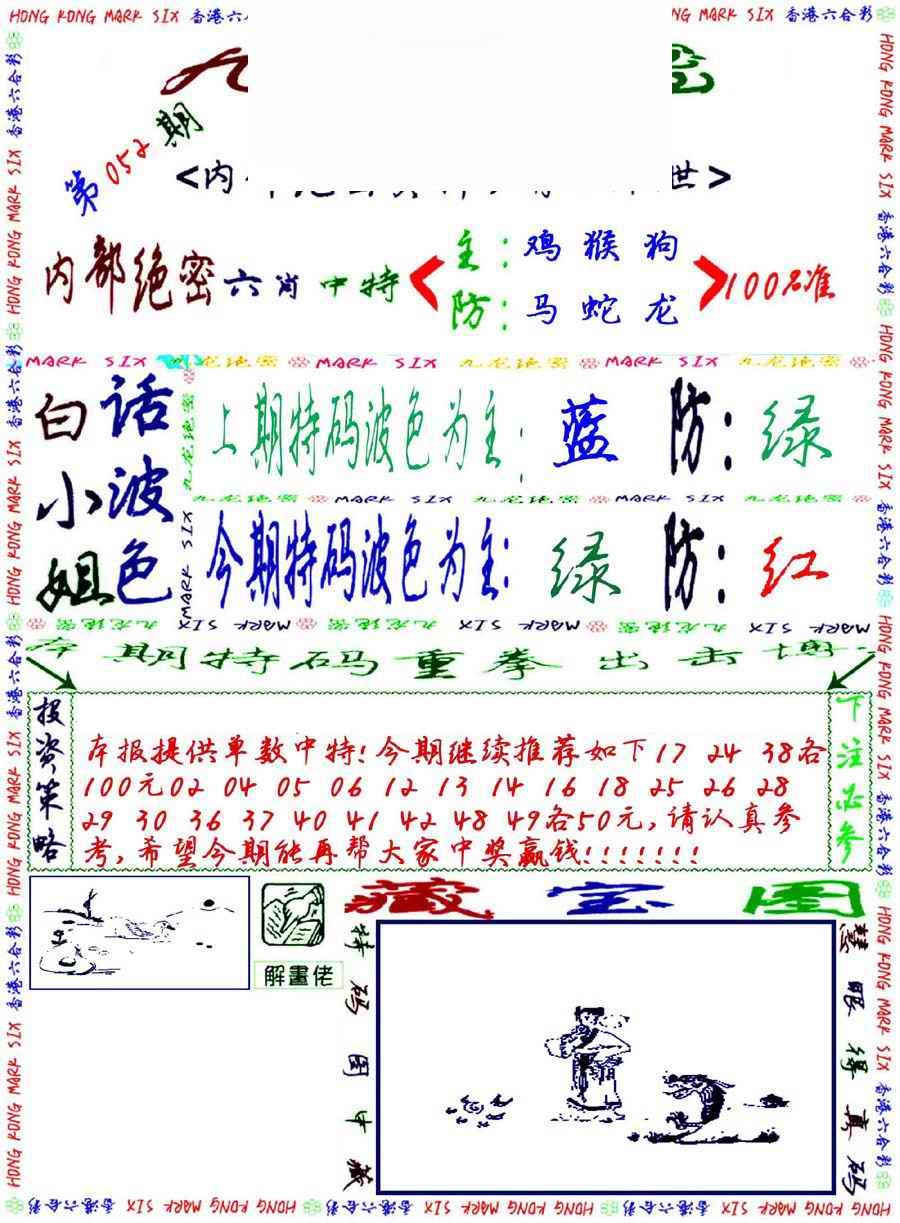 HONG KONG MARK SIX 香港六合彩
第052期
内部绝密六肖中特
主：鸡 猴 狗
防：马 蛇 龙
100%准
MARK SIX 九龙绝密 MARK SIX 九龙绝密 MARK SIX 九龙绝密
白话
小波
姐色
上期特码波色为主：蓝 防：绿
九龙绝密 MARK SIX 九龙绝密 MARK SIX 九龙绝密
今期特码波色为主：绿 防：红
九龙绝密 MARK SIX 九龙绝密 MARK SIX 九龙绝密 MARK SIX
本期特码重拳出击
投资策略
本报提供单数中特！今期继续推荐如下17 24 38各
100元02 04 05 06 12 13 14 16 18 25 26 28
29 30 36 37 40 41 42 48 49各50元，请认真参
考，希望今期能再帮大家中奖赢钱！！！！！！！
下注必参
解畫佬
藏宝图
特码图中藏
慧眼得真码
HONG KONG MARK SIX 香港六合彩